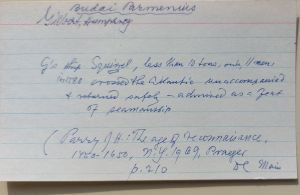 Budai Parmenius
Gilbert, Humphrey
G's ship Squirrel, less than 10 tons, only 11 men
in 1580 crossed the Atlantic unaccompanied
& returned safely – admired as a feat
of seamanship
(Parry, J H: The age of reconnaissance,
1450-1650, N.Y. 1969, Praeger
p. 210